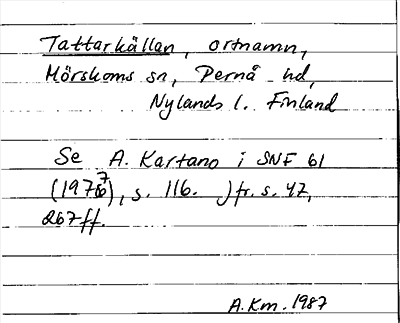 Tattarkällan, ortnamn,
Mörskoms sn, Pernå hd,
Nylands l. Finland
Se A. Kartano i SNF 61
(1977), s. 116. Jfr. s. 47,
267 ff.
A.Km. 1987